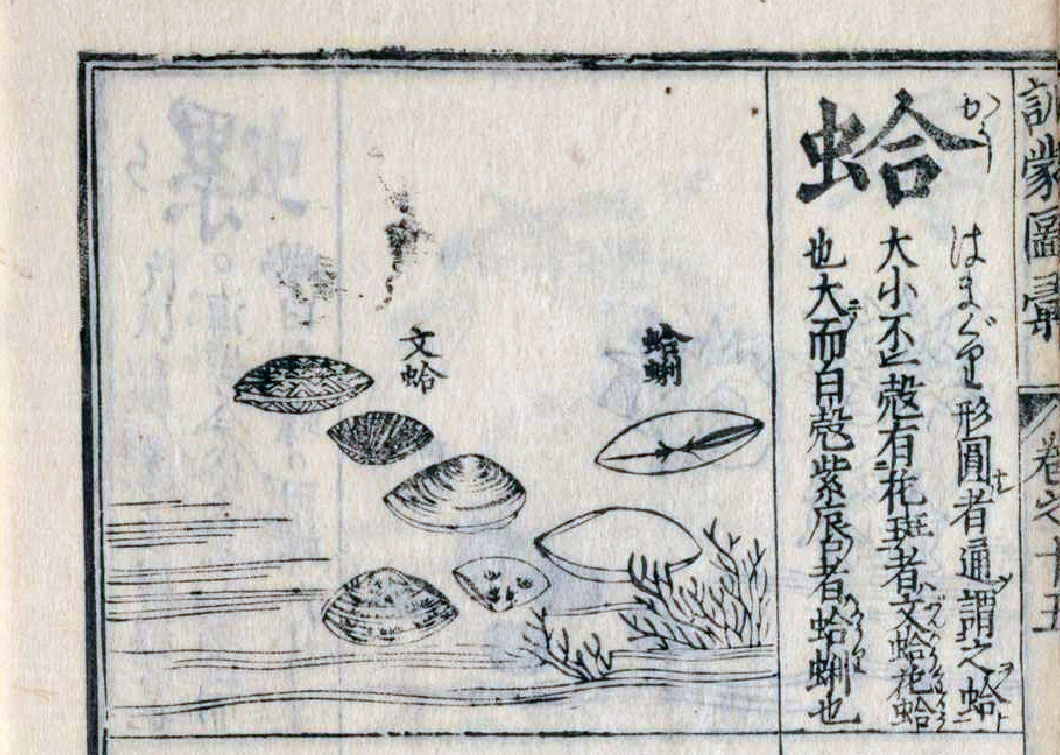 訓蒙圖彙 卷之十五
蛤 かう
はまぐり形圓者通謂之蛤
大小不一殼有花斑者文蛤花蛤
也大而白殼紫唇者蛤蜊也
蛤蜊
文蛤